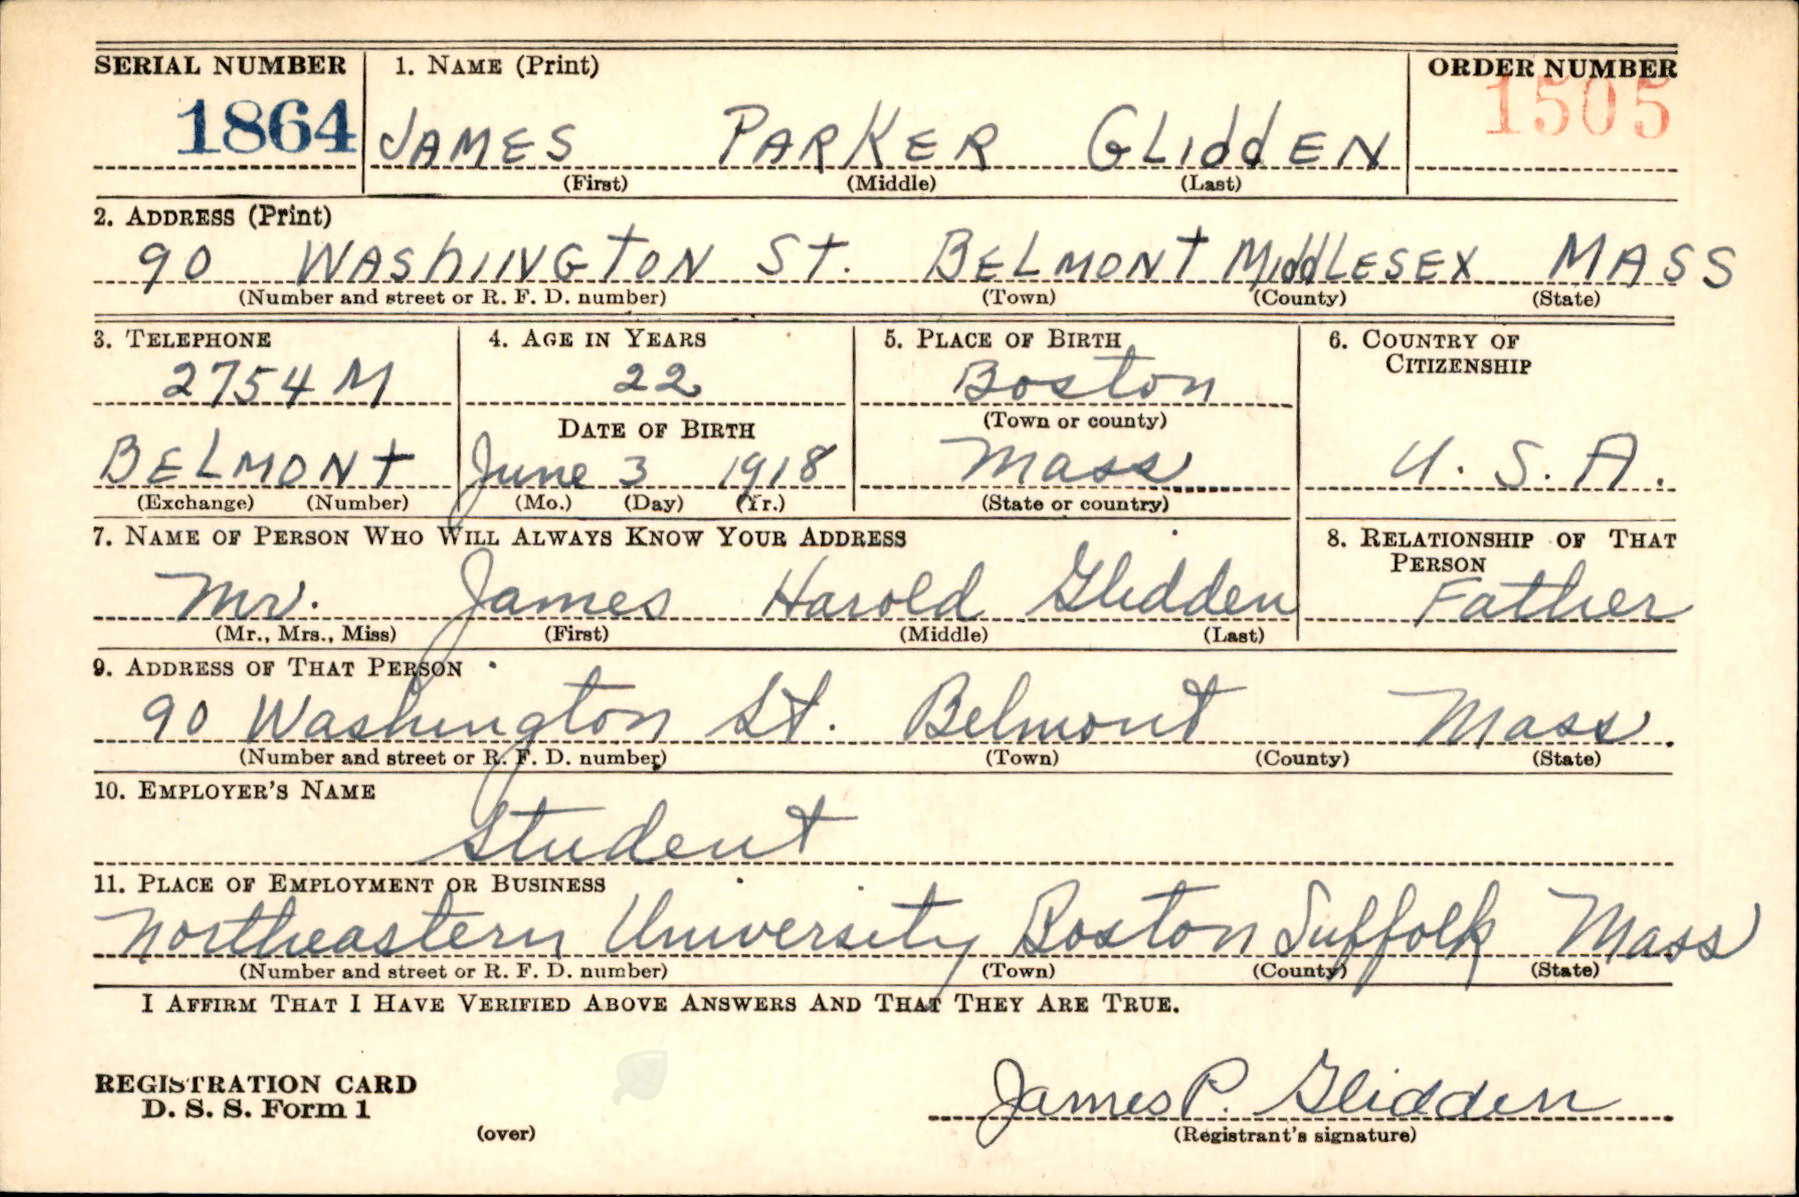 SERIAL NUMBER 1. NAME (Print) ORDER NUMBER
1864 JAMES PARKER GLIddEN 1505
(First) (Middle) (Last)
2. ADDRESS (Print)
90 WAShINGTON St. BELMONT MiddLESEX MASS
(Number and street or R. F. D. number) (Town) (County) (State)
3. TELEPHONE 4. AGE IN YEARS 5. PLACE OF BIRTH 6. COUNTRY OF CITIZENSHIP
2754 M 22 Boston
DATE OF BIRTH (Town or county)
BELMONT June 3 1918 Mass U. S. A.
(Exchange) (Number) (Mo.) (Day) (Yr.) (State or country)
7. NAME OF PERSON WHO WILL ALWAYS KNOW YOUR ADDRESS 8. RELATIONSHIP OF THAT PERSON
Mr. James Harold Glidden Father
(Mr., Mrs., Miss) (First) (Middle) (Last)
9. ADDRESS OF THAT PERSON
90 Washington St. Belmont Mass.
(Number and street or R. F. D. number) (Town) (County) (State)
10. EMPLOYER'S NAME
Student
11. PLACE OF EMPLOYMENT OR BUSINESS
Northeastern University Boston Suffolk Mass
(Number and street or R. F. D. number) (Town) (County) (State)
I AFFIRM THAT I HAVE VERIFIED ABOVE ANSWERS AND THAT THEY ARE TRUE.
REGISTRATION CARD
D. S. S. Form 1 James P. Glidden
(over) (Registrant's signature)